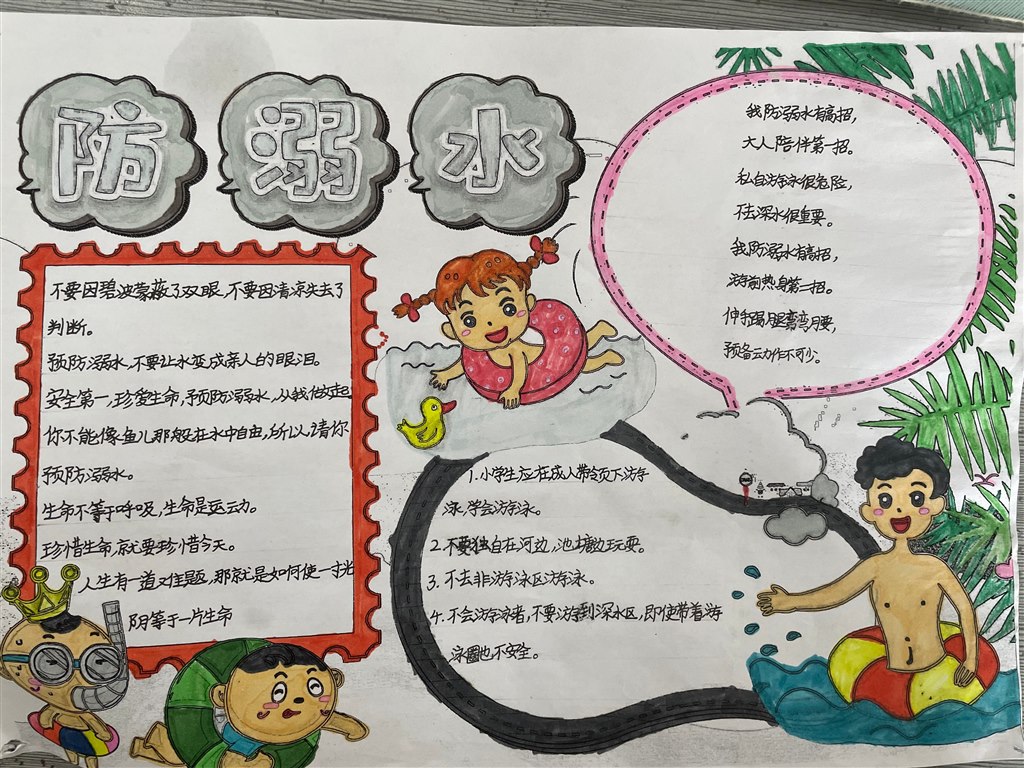 防溺水
不要因碧波蒙蔽了双眼,不要因清凉失去了
判断。
预防溺水,不要让水变成亲人的眼泪。
安全第一,珍爱生命,预防溺水,从我做起
你不能像鱼儿那般在水中自由,所以,请你
预防溺水。
生命不等于呼吸,生命是运动。
珍惜生命,就要珍惜今天。
人生有一道难题,那就是如何使一寸光
阴等于一片生命
我防溺水有高招,
大人陪伴第一招。
私自游泳很危险,
不去深水很重要。
我防溺水有高招,
游前热身第二招。
伸手踢腿弯弯腰,
预备云力作不可少。
1.小学生应在成人带领下游
泳,学会游泳。
2.不要独自在河边,池塘边玩耍。
3.不去非游泳区游泳。
4.不会游泳者,不要游到深水区,即使带着游
泳圈也不安全。